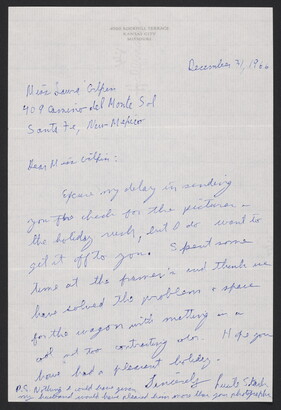 KANSAS CITY
MISSOURI
December 31, 19
Miss Laura Gilpin
409 Camino del Monte Sol
Santa Fe, New Mexico
Dear Miss Gilpin:
Excuse my delay in sending
you the check for the pictures -
the holiday rush, but I do want to
get it off to you. Spent some
time at the framer's and think we
have solved the problem & space
for the wagon with matting in a
not too contrasting color. Hope you
have had a pleasant holiday.
Sincerely
P.S. Nothing I could have given
my husband would have pleased him more than your photographs